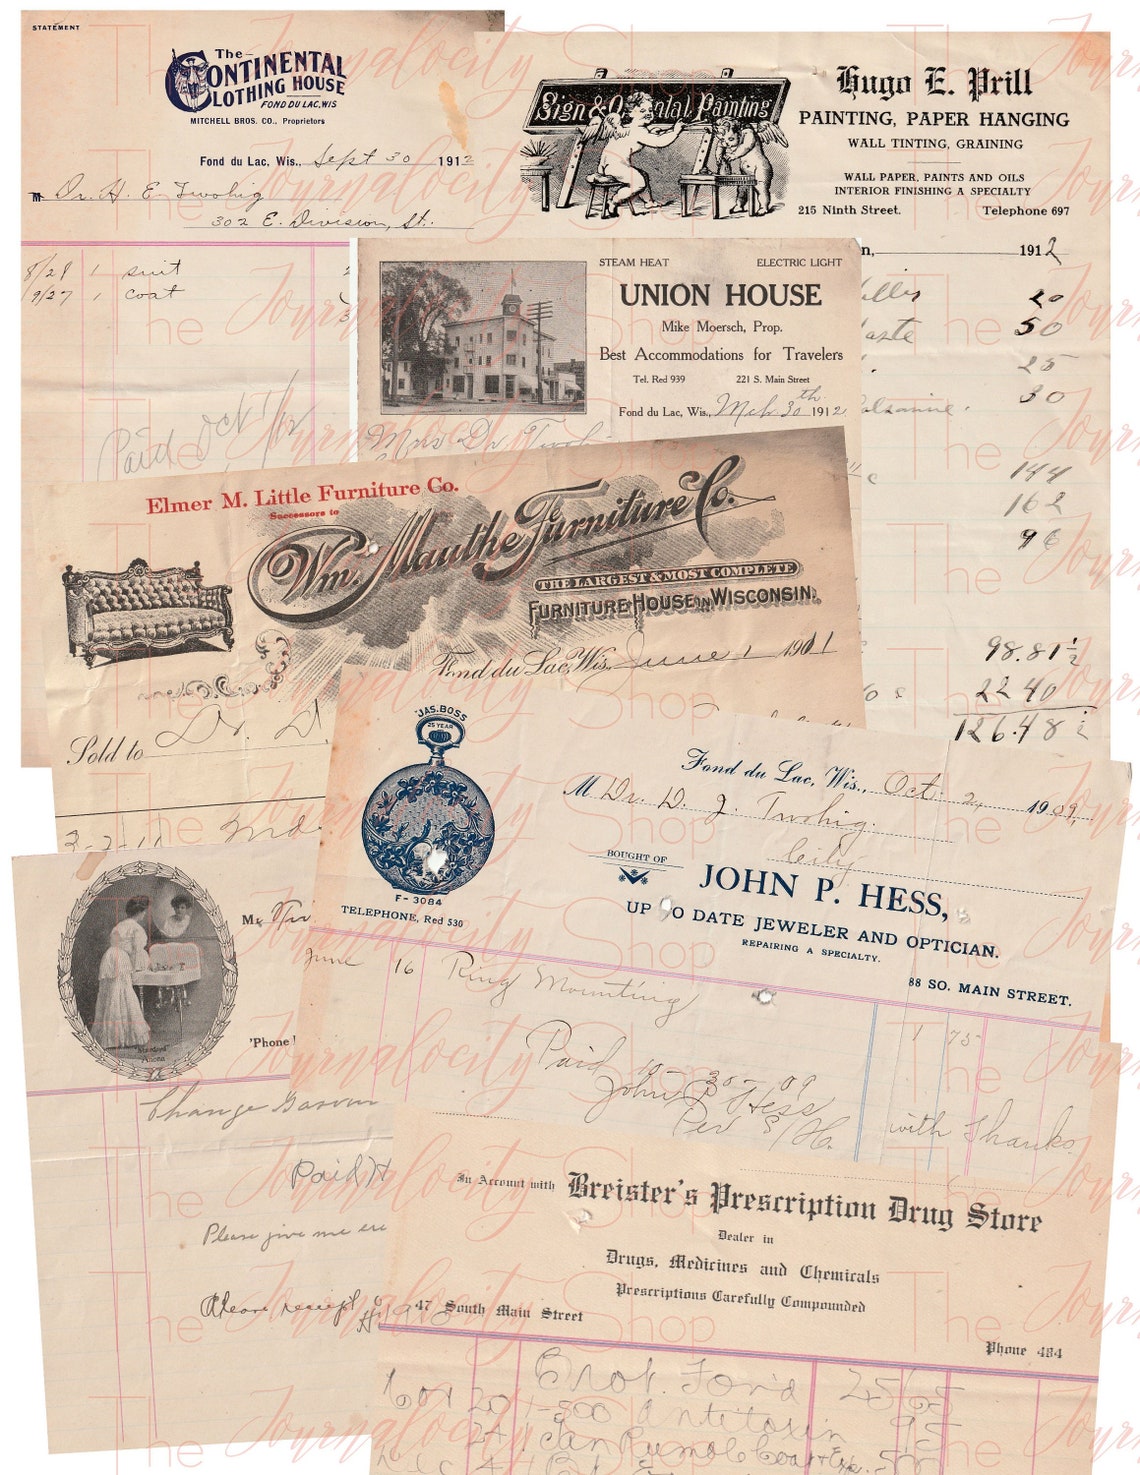 STATEMENT
The
CONTINENTAL
CLOTHING HOUSE
FOND DU LAC, WIS
MITCHELL BROS. CO., Proprietors
Fond du Lac, Wis., Sept 30 1912
M Dr. H. E. Twohig
302 E. Division, St.
8/28 1 suit
9/27 1 coat
Paid Oct 1/12
Sign & O ntal Painting
Hugo E. Prill
PAINTING, PAPER HANGING
WALL TINTING, GRAINING
WALL PAPER, PAINTS AND OILS
INTERIOR FINISHING A SPECIALTY
215 Ninth Street. Telephone 697
n, 1912
20
aste 50
25
30
c 144
162
96
98.81½
22 40
126.48½
STEAM HEAT ELECTRIC LIGHT
UNION HOUSE
Mike Moersch, Prop.
Best Accommodations for Travelers
Tel. Red 939 221 S. Main Street
Fond du Lac, Wis., Mch 30th 1912
Mrs Dr. Twohi
Elmer M. Little Furniture Co.
Successors to
Wm. Mauthe Furniture Co.
THE LARGEST & MOST COMPLETE
FURNITURE HOUSE IN WISCONSIN.
Fond du Lac, Wis. June 1 1911
Sold to Dr. D
3-2-11 Mds
JAS. BOSS
25 YEAR
F-3084
TELEPHONE, Red 530
Fond du Lac, Wis., Oct. 2, 1909,
M Dr. D. J. Twohig.
City
BOUGHT OF
JOHN P. HESS,
UP TO DATE JEWELER AND OPTICIAN.
REPAIRING A SPECIALTY.
88 SO. MAIN STREET.
June 16 Ring Mounting
1 75
Paid 10-30-09
John P Hess
Per S/H.
with Thanks
M
'Phone
Change
Paid H
Please give me
Please receipt
In Account with Breister's Prescription Drug Store
Dealer in
Drugs, Medicines and Chemicals
Prescriptions Carefully Compounded
47 South Main Street
Phone 484
20
antitoxin
The Journalocity Shop